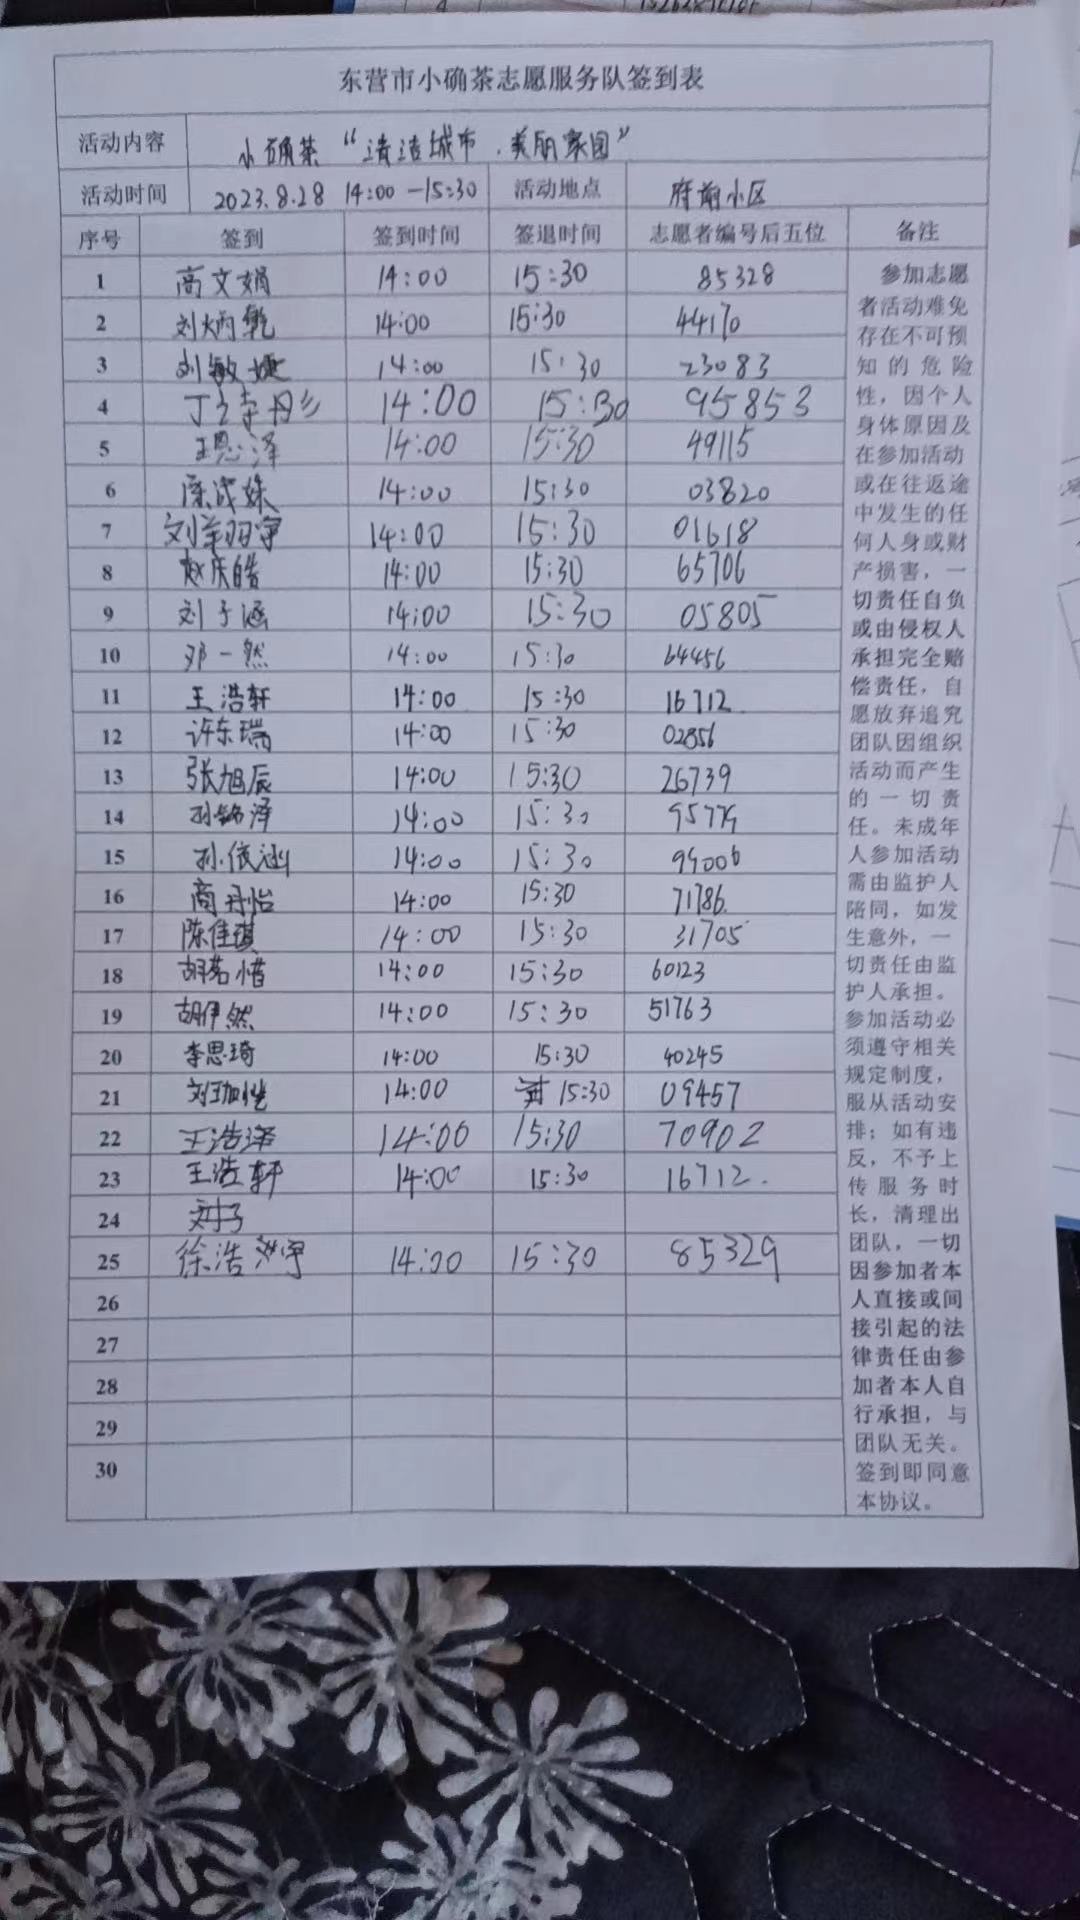 东营市小确茶志愿服务队签到表
活动内容 小确茶“清洁城市.美丽家园”
活动时间 2023.8.28 14:00-15:30 活动地点 府前小区
序号 签到 签到时间 签退时间 志愿者编号后五位 备注
1 高文娟 14:00 15:30 85328
2 刘炳乾 14:00 15:30 44170
3 刘敏捷 14:00 15:30 23083
4 14:00 15:30 95853
5 王思泽 14:00 15:30 49115
6 14:00 15:30 03820
7 14:00 15:30 01618
8 赵庆皓 14:00 15:30 65706
9 刘子涵 14:00 15:30 05805
10 邓一然 14:00 15:30 64456
11 王浩轩 14:00 15:30 16712
12 许东瑞 14:00 15:30 02856
13 张旭辰 14:00 15:30 26739
14 孙铭泽 14:00 15:30
15 孙依涵 14:00 15:30 99006
16 商丹怡 14:00 15:30 71786
17 陈佳琪 14:00 15:30 31705
18 胡茗惜 14:00 15:30 60123
19 胡伊然 14:00 15:30 51763
20 李思琦 14:00 15:30 40245
21 14:00 15:30 09457
22 王浩泽 14:00 15:30 70902
23 王浩轩 14:00 15:30 16712.
24
25 徐浩 14:00 15:30 85329
26
27
28
29
30
参加志愿
者活动难免
存在不可预
知的危险
性，因个人
身体原因及
在参加活动
或在往返途
中发生的任
何人身或财
产损害，一
切责任自负
或由侵权人
承担完全赔
偿责任，自
愿放弃追究
团队因组织
活动而产生
的一切责
任。未成年
人参加活动
需由监护人
陪同，如发
生意外，一
切责任由监
护人承担。
参加活动必
须遵守相关
规定制度，
服从活动安
排；如有违
反，不予上
传服务时
长，清理出
团队，一切
因参加者本
人直接或间
接引起的法
律责任由参
加者本人自
行承担，与
团队无关。
签到即同意
本协议。